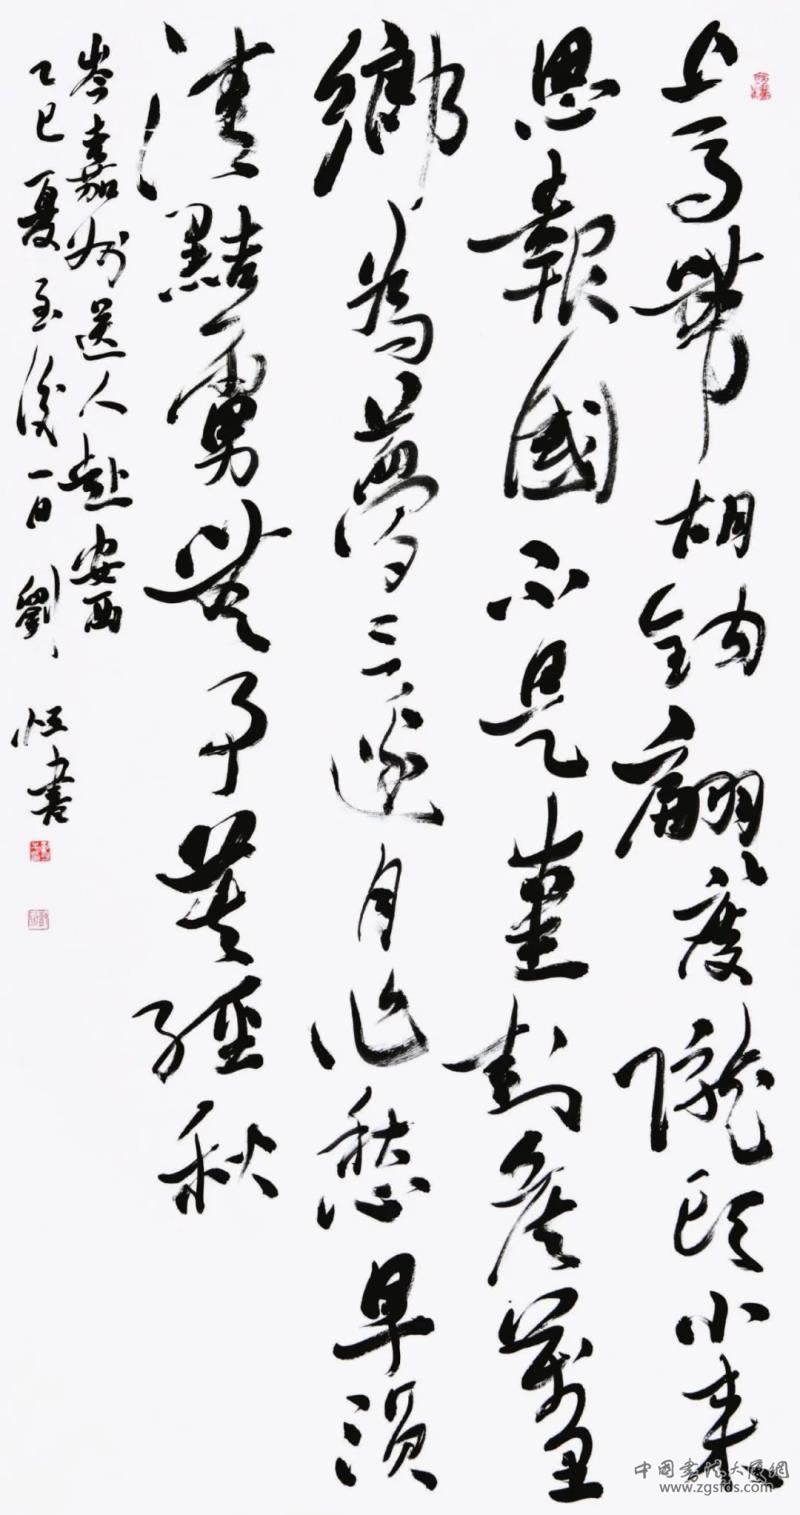 上馬帶胡鈎翩〻度隴頭小來
思報國不是愛封侯萬里
鄉為夢三邊月作愁早須
清黠虜無事莫經秋
岑嘉州送人赴安西
乙巳夏至後一日劉恒書
中國書法大厦網
www.zgsfds.com